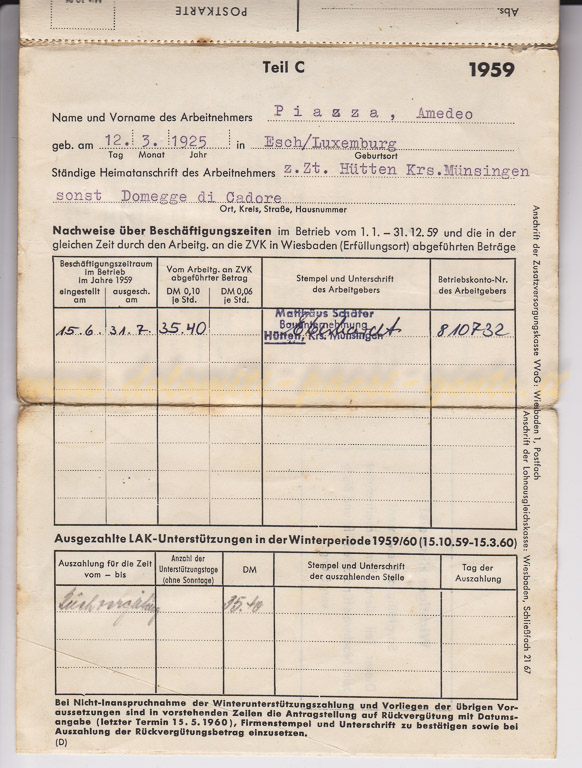 Abs.
POSTKARTE
Teil C
1959
Name und Vorname des Arbeitnehmers Piazza, Amedeo
geb. am 12. 3. 1925 in Esch/Luxemburg
Tag Monat Jahr Geburtsort
Ständige Heimatanschrift des Arbeitnehmers z.Zt. Hütten Krs.Münsingen
sonst Domegge di Cadore
Ort, Kreis, Straße, Hausnummer
Nachweise über Beschäftigungszeiten im Betrieb vom 1.1. – 31.12.59 und die in der
gleichen Zeit durch den Arbeitg. an die ZVK in Wiesbaden (Erfüllungsort) abgeführten Beträge
Beschäftigungszeitraum
im Betrieb
im Jahre 1959
eingestellt am
ausgesch. am
Vom Arbeitg. an ZVK
abgeführter Betrag
DM 0,10 je Std.
DM 0,06 je Std.
Stempel und Unterschrift
des Arbeitgebers
Betriebskonto-Nr.
des Arbeitgebers
15.6. 31.7. 35.40 810732
Matthäus Schäfer
Bauunternehmung
Hütten, Krs. Münsingen
Ausgezahlte LAK-Unterstützungen in der Winterperiode 1959/60 (15.10.59-15.3.60)
Auszahlung für die Zeit
vom – bis
Anzahl der
Unterstützungstage
(ohne Sonntage)
DM
Stempel und Unterschrift
der auszahlenden Stelle
Tag der
Auszahlung
35.40
Bei Nicht-Inanspruchnahme der Winterunterstützungszahlung und Vorliegen der übrigen Vor-
aussetzungen sind in vorstehenden Zeilen die Antragstellung auf Rückvergütung mit Datums-
angabe (letzter Termin 15.5.1960), Firmenstempel und Unterschrift zu bestätigen sowie bei
Auszahlung der Rückvergütungsbetrag einzusetzen.
(D)
Anschrift der Zusatzversorgungskasse VVaG: Wiesbaden 1, Postfach
Anschrift der Lohnausgleichskasse: Wiesbaden, Schließfach 21 67